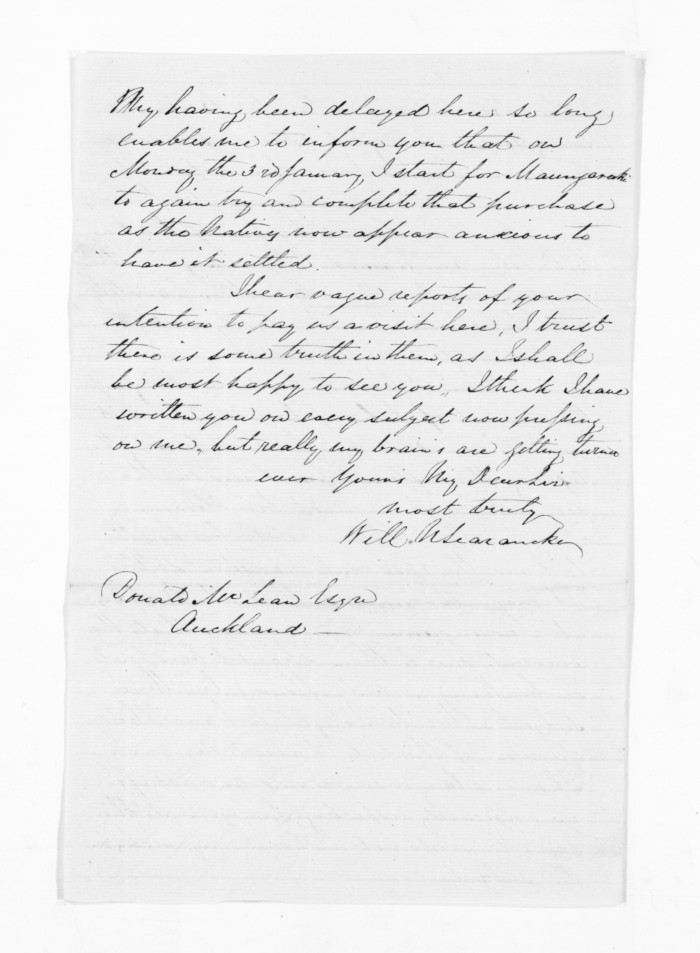 My having been delayed here so long
enables me to inform you that on
Monday the 3rd January, I start for Maungaraki
to again try and complete that purchase
as the Natives now appear anxious to
have it settled.
I hear vague reports of your
intention to pay us a visit here, I trust
there is some truth in them, as I shall
be most happy to see you, I think I have
written you on every subject now pressing
on me, but really my brains are getting
ever Yours My Dear Sir
most truly
Will N Searancke
Donald McLean Esqre
Auckland —